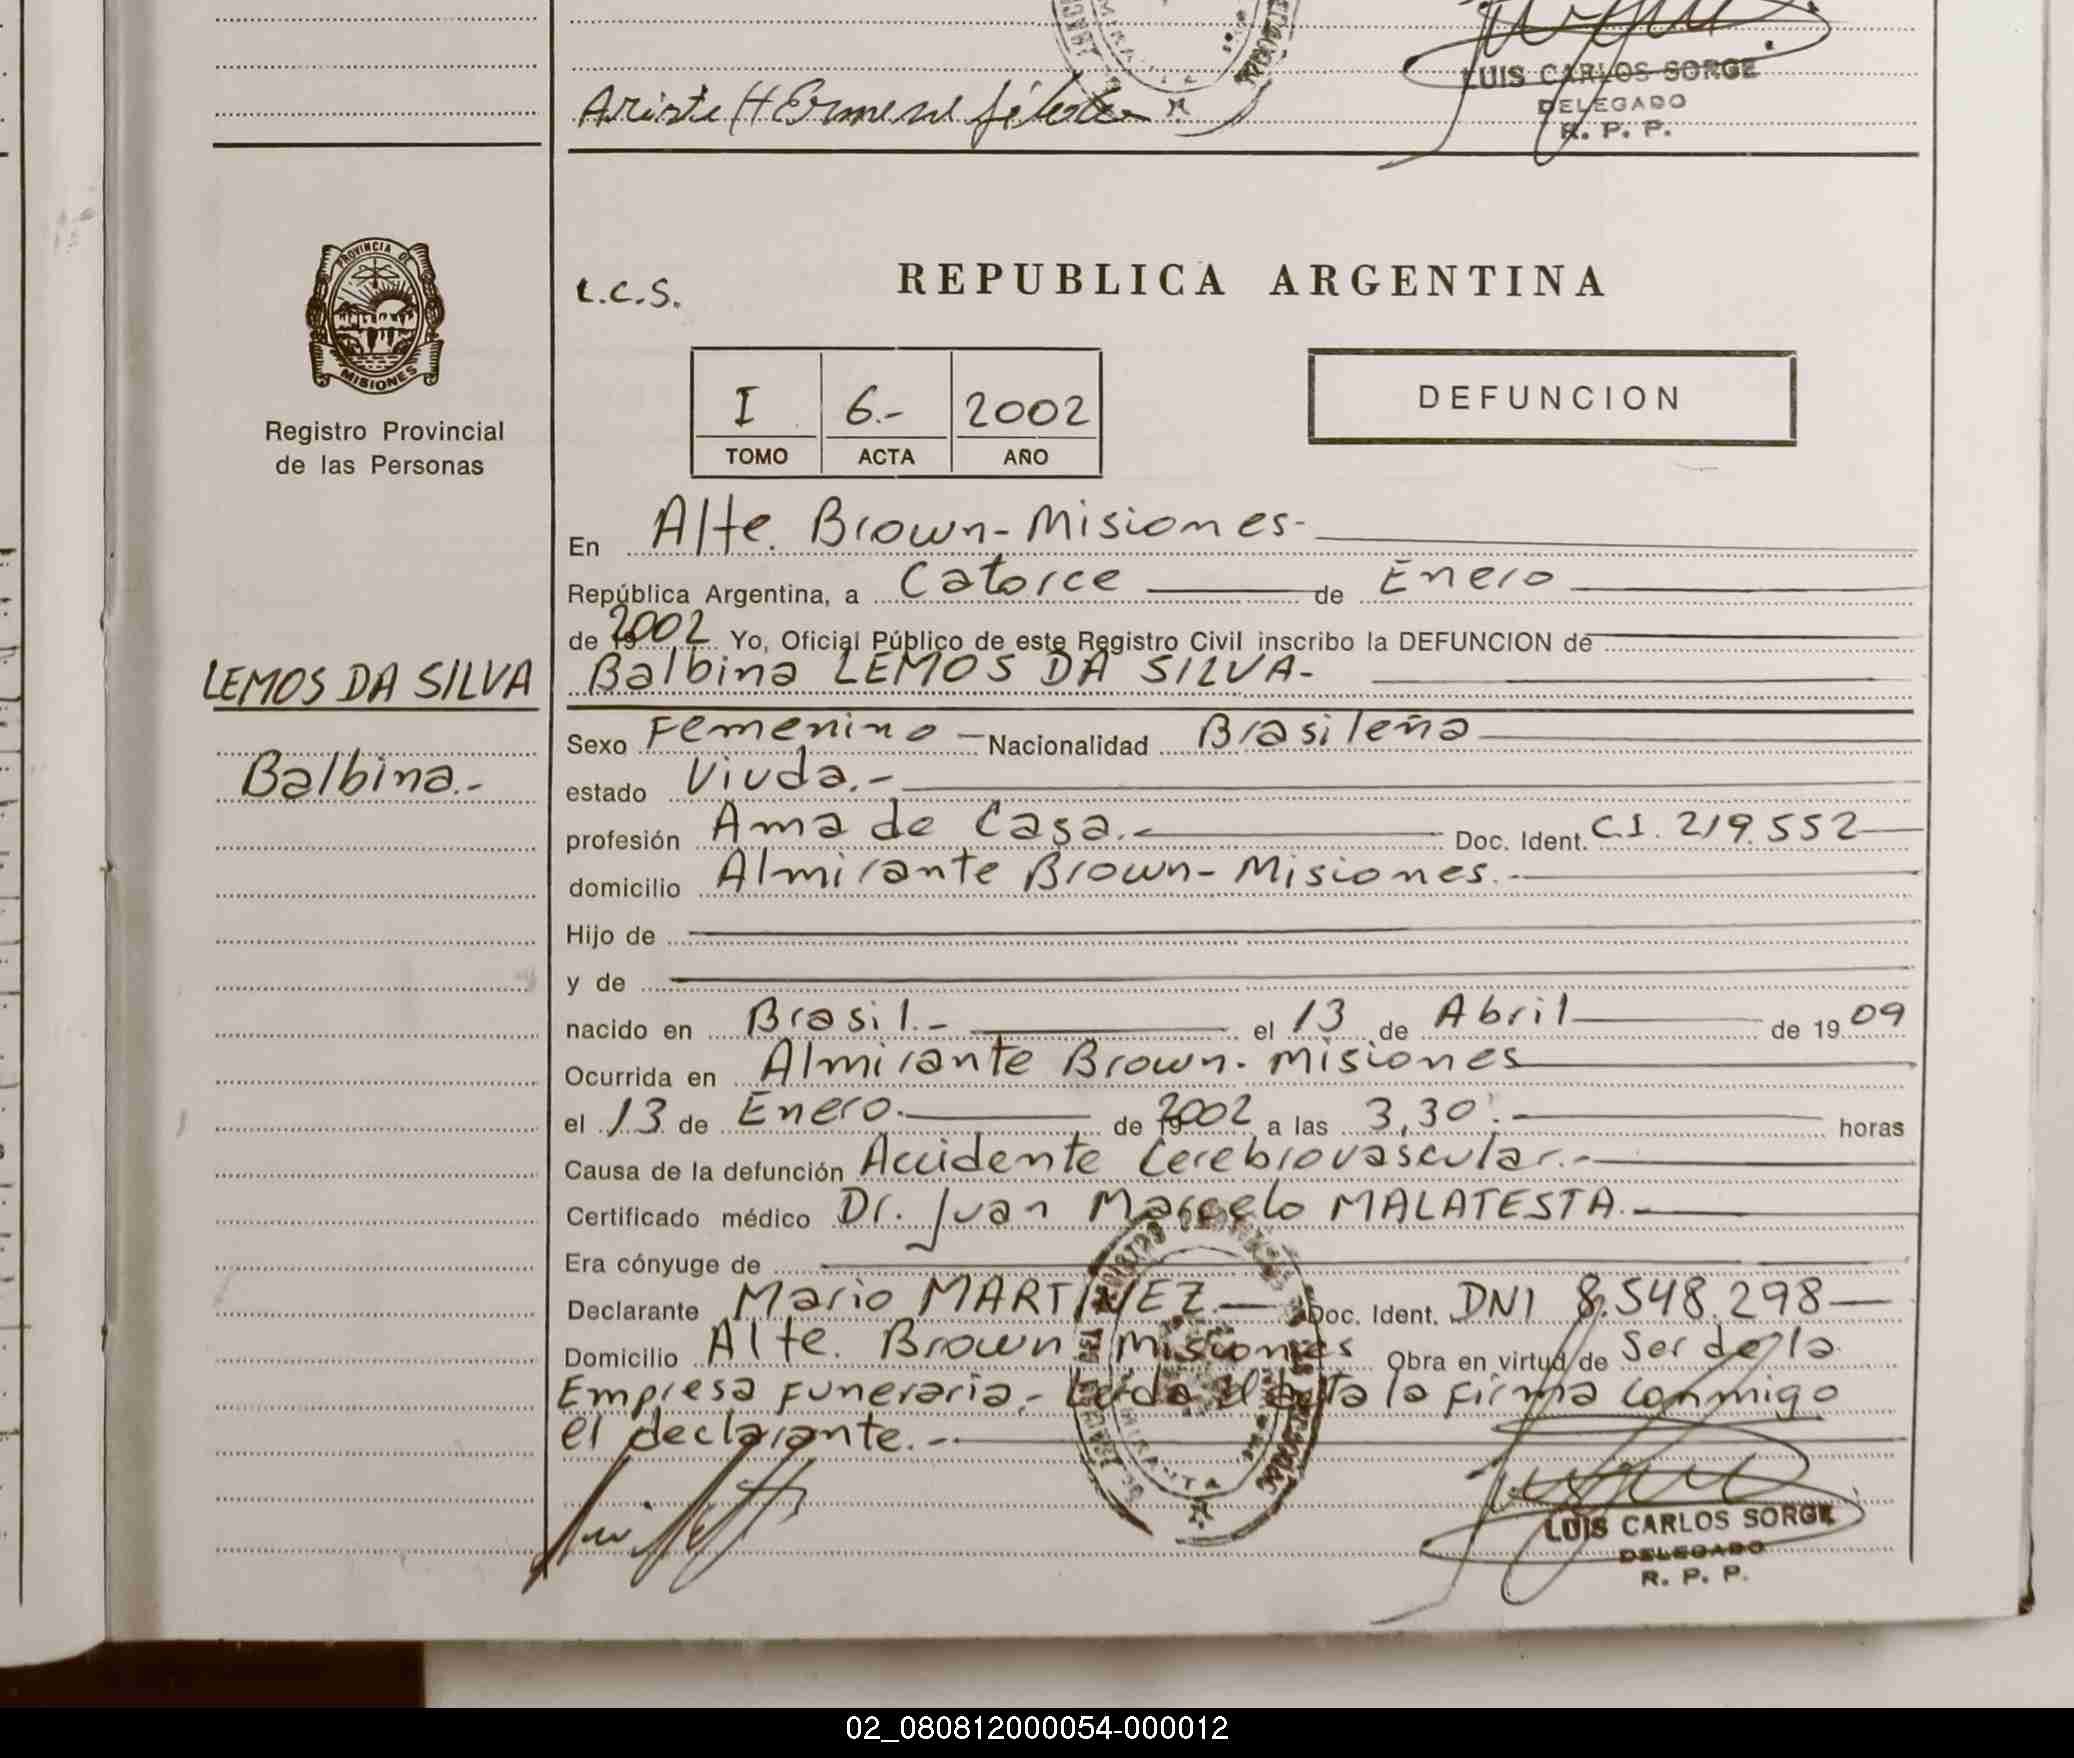 LUIS CARLOS SORGE
DELEGADO
R. P. P.
PROVINCIA DE
MISIONES
Registro Provincial
de las Personas
L.C.S.
REPUBLICA ARGENTINA
I 6.- 2002
TOMO ACTA AÑO
DEFUNCION
En Alte. Brown-Misiones-
República Argentina, a Catorce de Enero
de 2002 Yo, Oficial Público de este Registro Civil inscribo la DEFUNCION de
LEMOS DA SILVA
Balbina.-
Balbina LEMOS DA SILVA-
Sexo Femenino - Nacionalidad Brasileña
estado Viuda.-
profesión Ama de Casa.- Doc. Ident. C.I. 219.552
domicilio Almirante Brown-Misiones.-
Hijo de
y de
nacido en Brasil.- el 13 de Abril de 1909
Ocurrida en Almirante Brown-Misiones
el 13 de Enero.- de 2002 a las 3,30.- horas
Causa de la defunción Accidente Cerebrovascular.-
Certificado médico Dr. Juan Marcelo MALATESTA.-
Era cónyuge de
Declarante Mario MARTINEZ.- Doc. Ident. DNI 8.548.298
Domicilio Alte. Brown Misiones Obra en virtud de Ser de la
Empresa Funeraria.- Leida el Acta la firma conmigo
el declarante.-
LUIS CARLOS SORGE
DELEGADO
R. P. P.
02_080812000054-000012